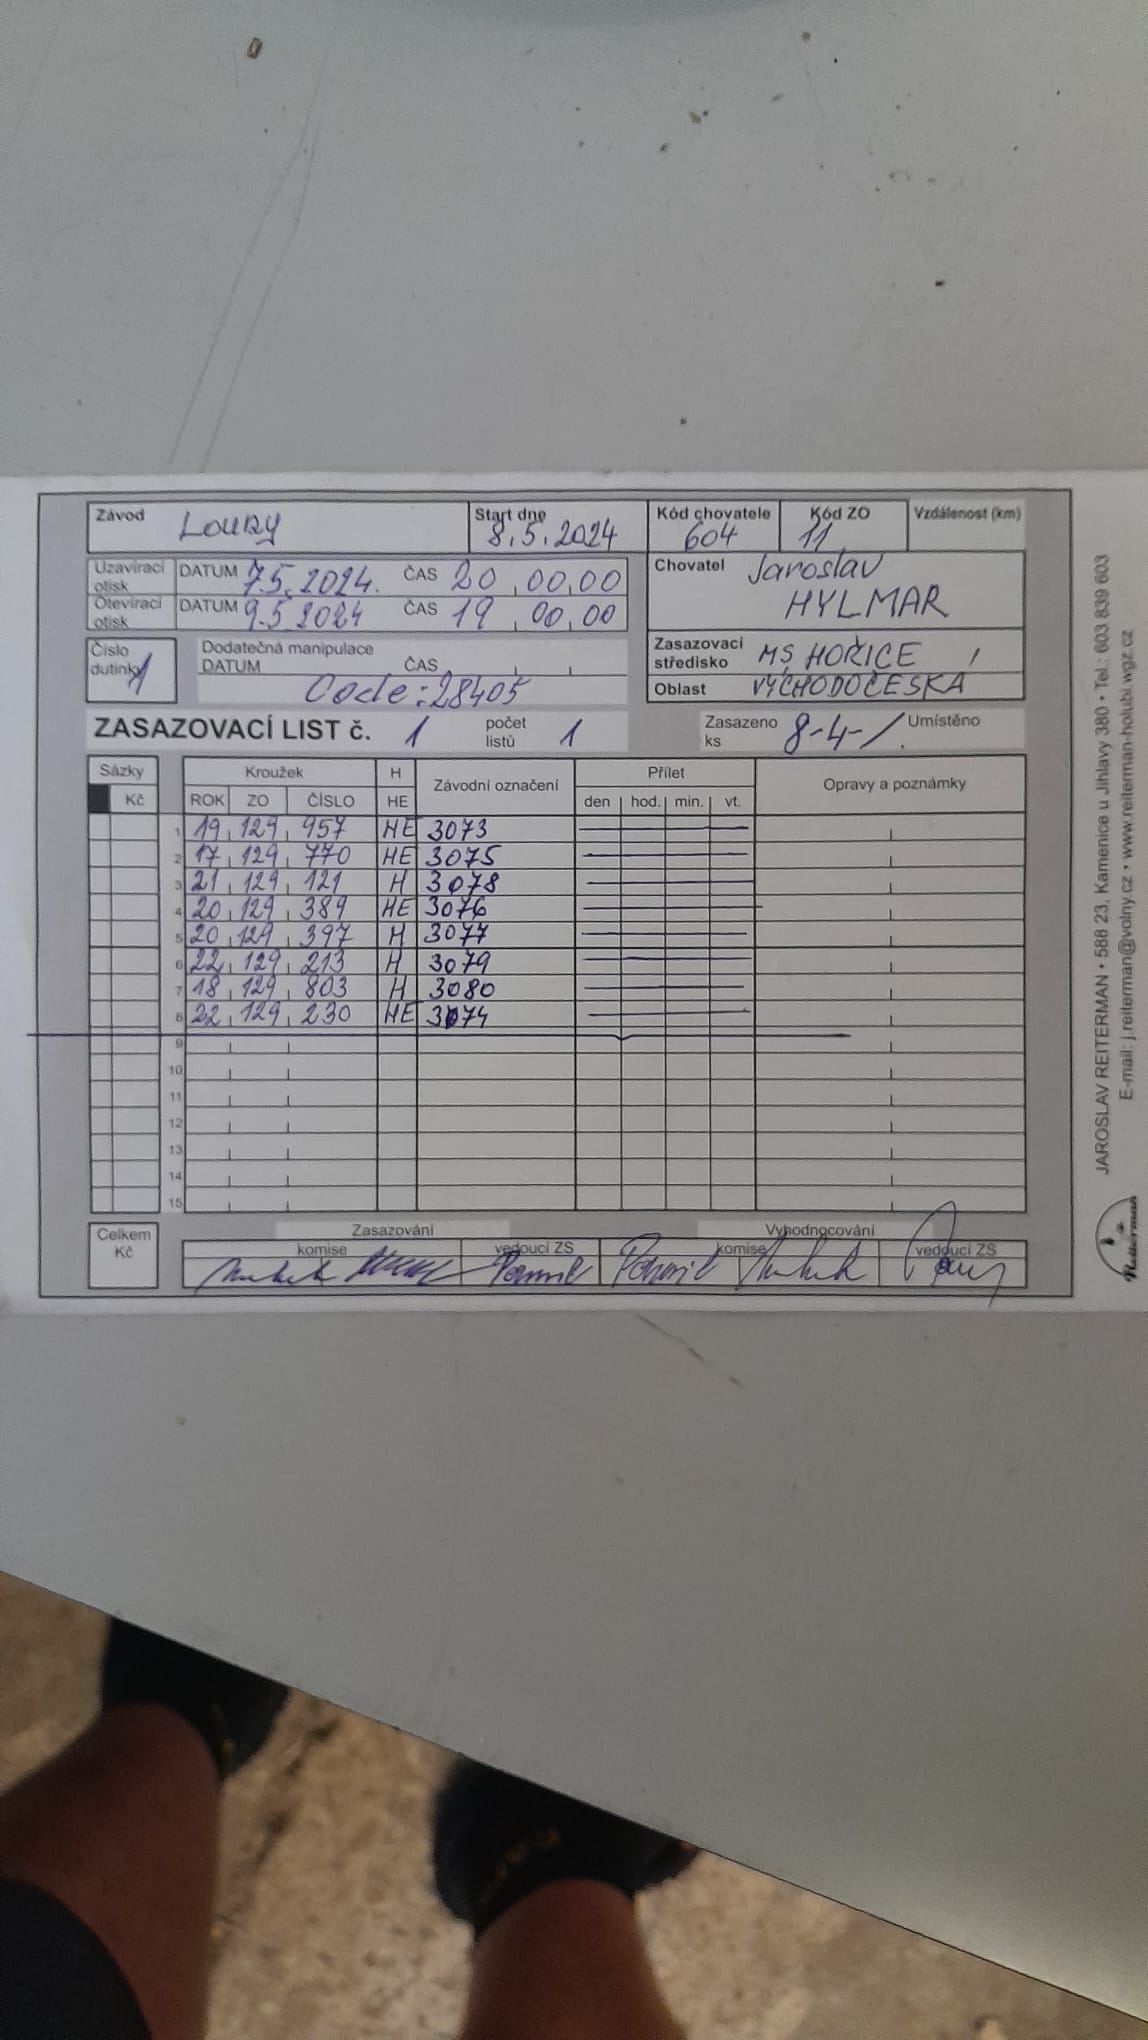 Závod Louny Start dne 8.5.2024 Kód chovatele 604 Kód ZO 11 Vzdálenost (km)
Uzavírací otisk DATUM 7.5.2024. ČAS 20,00,00
Otevírací otisk DATUM 9.5.2024 ČAS 19,00,00
Chovatel Jaroslav HYLMAR
Číslo dutinky 1 Dodatečná manipulace
DATUM ČAS
Code: 28405
Zasazovací středisko MS HOŘICE
Oblast VÝCHODOČESKÁ
ZASAZOVACÍ LIST č. 1 počet listů 1 Zasazeno ks 8-4-/. Umístěno
Sázky Kroužek H Závodní označení Přílet Opravy a poznámky
Kč ROK ZO ČÍSLO HE den hod. min. vt.
1 19 129 957 HE 3073
2 17 129 770 HE 3075
3 21 129 121 H 3078
4 20 129 389 HE 3076
5 20 129 397 H 3077
6 22 129 213 H 3079
7 18 129 803 H 3080
8 22 129 230 HE 3074
9
10
11
12
13
14
15
Celkem Kč Zasazování Vyhodnocování
komise vedoucí ZS komise vedoucí ZS
JAROSLAV REITERMAN • 588 23, Kamenice u Jihlavy 380 • Tel.: 603 839 603
E-mail: j.reiterman@volny.cz • www.reiterman-holubi.wgz.cz
Reiterman